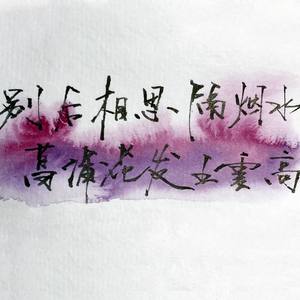 别后相思隔烟水
菖蒲花发五云高